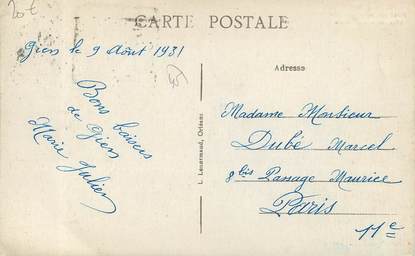 20 €
CARTE POSTALE
Gien le 9 Août 1931
45
Bons baisers
de Gien
Marie Julien
L. Lenormand, Orléans
Adresse
Madame Monsieur
Dubé Marcel
8 bis Passage Maurice
Paris
11e